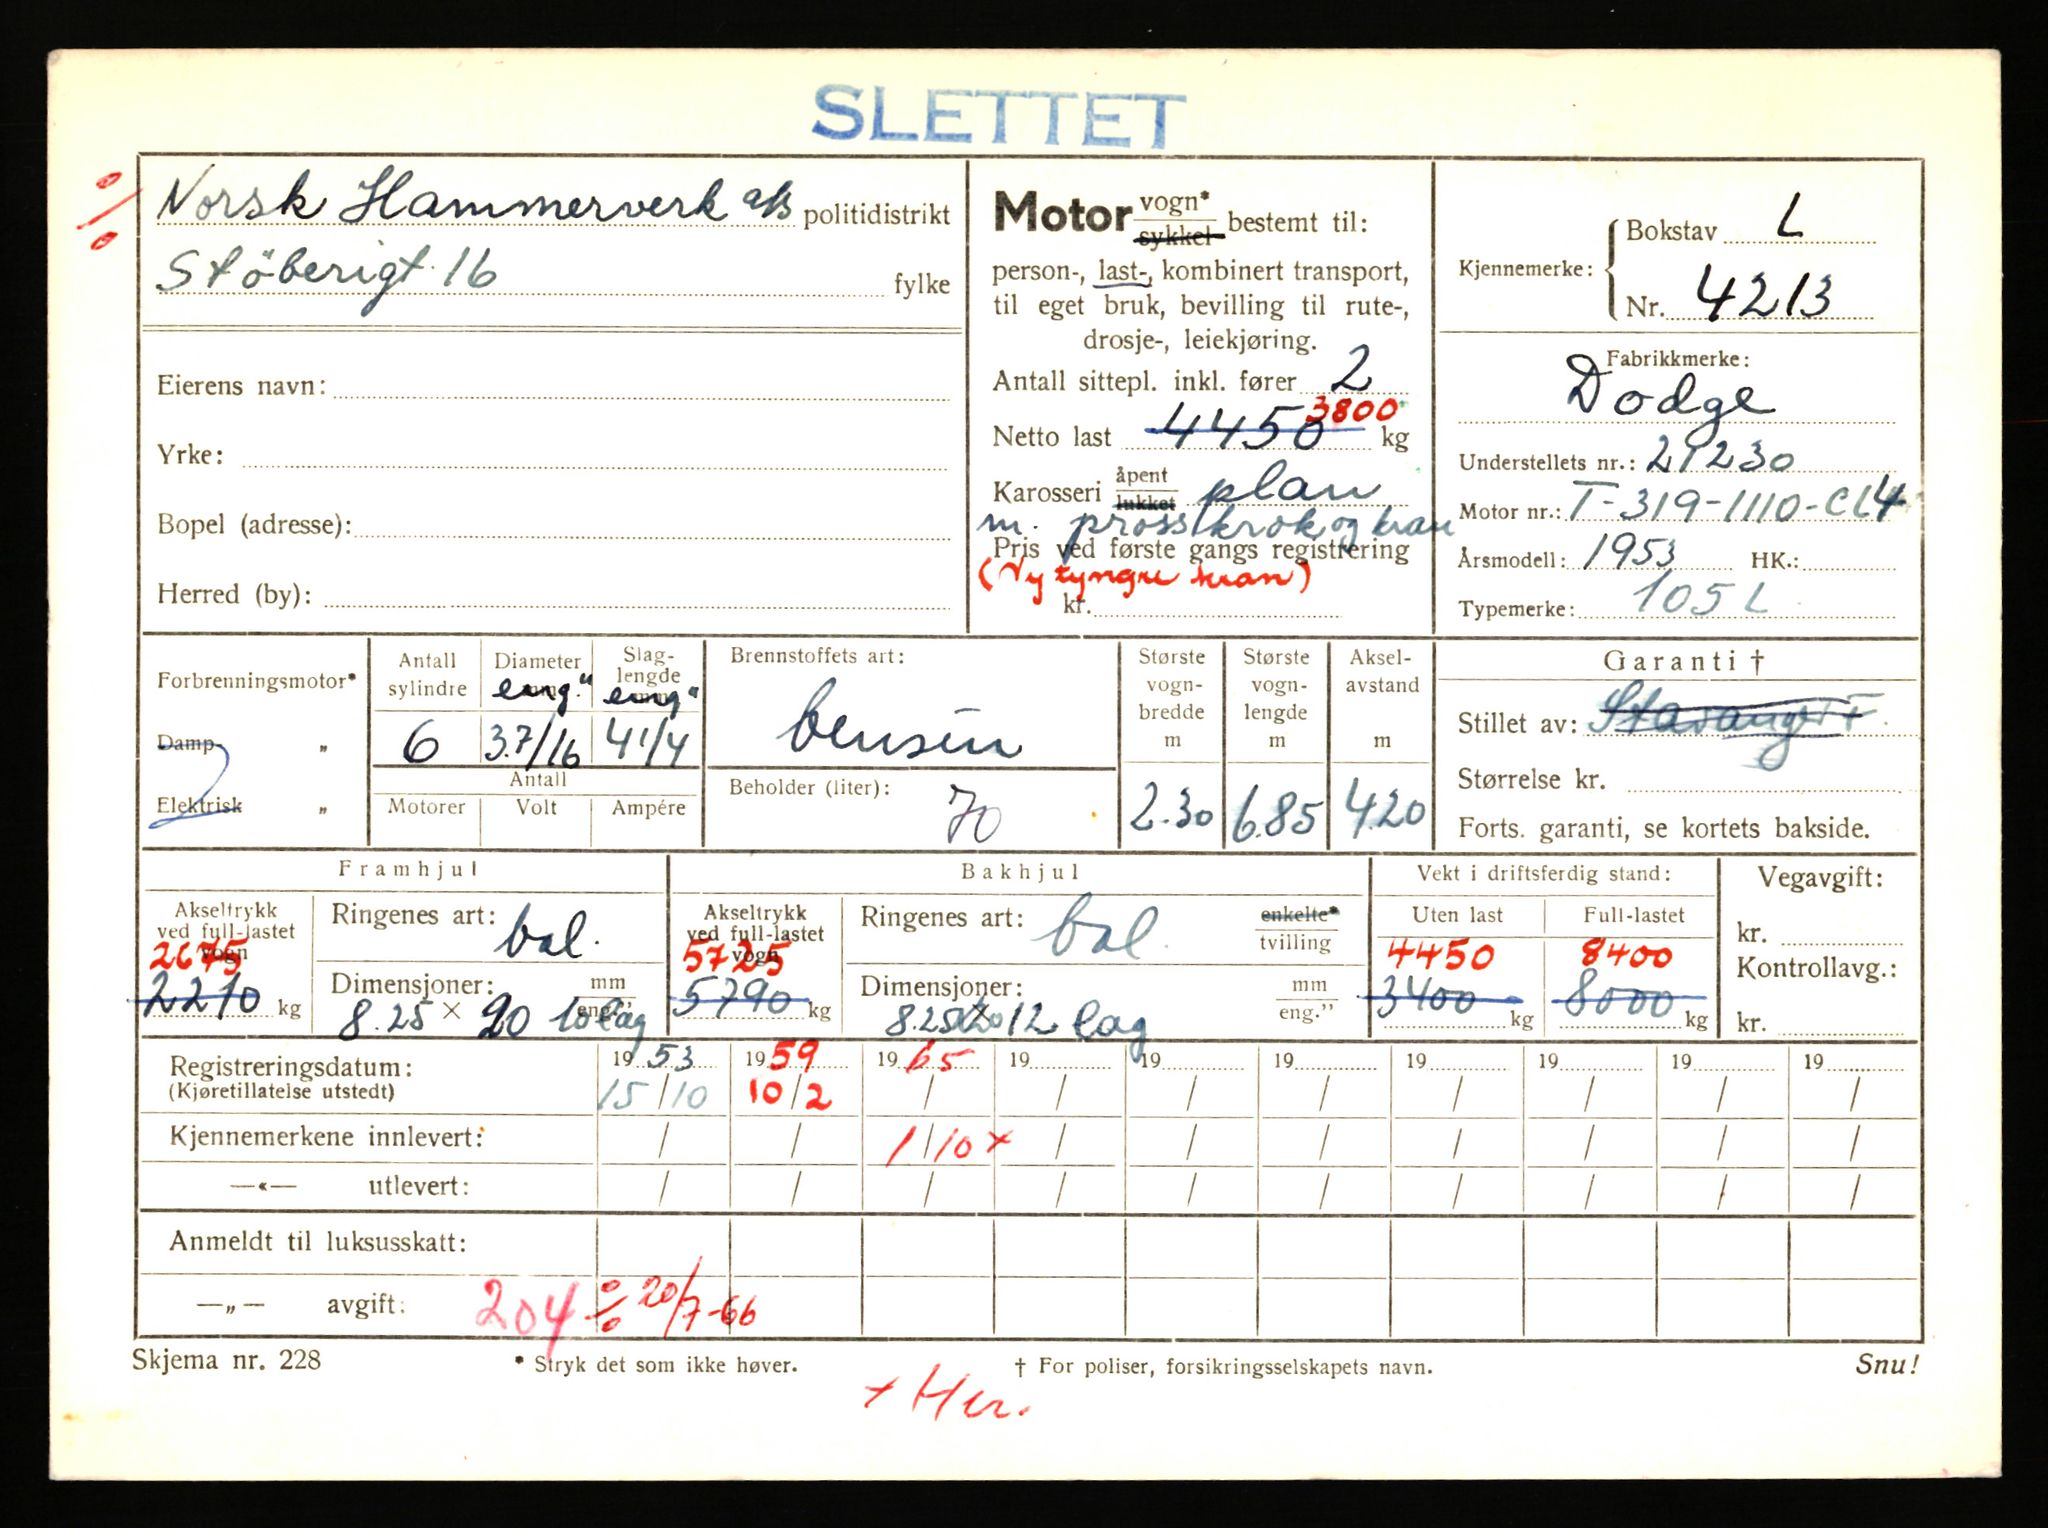 SLETTET
Norsk Hammerverk a/s politidistrikt
Stöberigt. 16 fylke
Eierens navn:
Yrke:
Bopel (adresse):
Herred (by):
Motor vogn* sykkel bestemt til:
person-, last-, kombinert transport,
til eget bruk, bevilling til rute-,
drosje-, leiekjøring.
Antall sittepl. inkl. fører 2
3800
Netto last 4450 kg
Karosseri åpent lukket plan
m. prosskrok og kran
Pris ved første gangs registrering
(Ny tyngre kran)
kr.
Kjennemerke: Bokstav L
Nr. 4213
Fabrikkmerke:
Dodge
Understellets nr.: 21230
Motor nr.: T-319-1110-CL4
Årsmodell: 1953 HK.:
Typemerke: 105 L
Forbrenningsmotor*
Damp- „
Elektrisk „
Antall sylindre
6
Diameter eng."
3.7/16
Slag-lengde eng"
4 1/4
Antall
Motorer Volt Ampére
Brennstoffets art:
bensin
Beholder (liter):
70
Største vogn-bredde m
2.30
Største vogn-lengde m
6.85
Aksel-avstand m
4.20
Garanti †
Stillet av: Stavanger
Størrelse kr.
Forts. garanti, se kortets bakside.
Framhjul
Akseltrykk ved full-lastet vogn
2675
2210 kg
Ringenes art: bal.
Dimensjoner: mm eng."
8.25 × 20 10 lag
Bakhjul
Akseltrykk ved full-lastet vogn
5725
5790 kg
Ringenes art: bal. enkelte* tvilling
Dimensjoner: mm eng."
8.25x20 12 lag
Vekt i driftsferdig stand:
Uten last Full-lastet
4450 8400
3400 kg 8000 kg
Vegavgift:
kr.
Kontrollavg.:
kr.
Registreringsdatum: 19 53 19 59 19 65 19 19 19 19 19 19 19
(Kjøretillatelse utstedt) 15/10 10/2 / / / / / / / /
Kjennemerkene innlevert: / / 1/10 x / / / / / / /
—«— utlevert: / / / / / / / / / /
Anmeldt til luksusskatt:
—„— avgift: 204 % 20/7-66
Skjema nr. 228 * Stryk det som ikke høver. † For poliser, forsikringsselskapets navn. Snu!
+ Her.